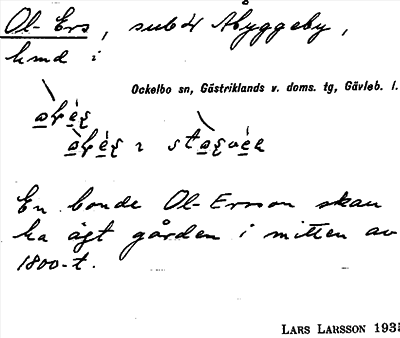 Ol-Ers, subst Åbyggeby,
hmd i
Ockelbo sn, Gästriklands v. doms. tg, Gävleb. l.
En bonde Ol-Ersson skau
ha ägt gården i mitten av
1800-t.
LARS LARSSON 1935